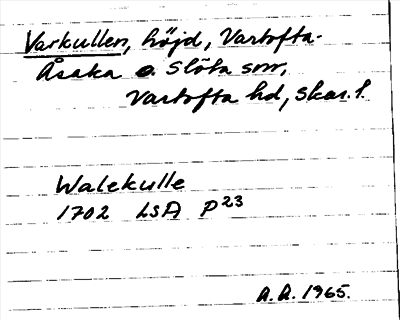 Varkullen, höjd, Vartofta-
Åsaka o. Slöta snr,
Vartofta hd, Skar. l.
Walekulle
1702 LSA P23
A.A. 1965.